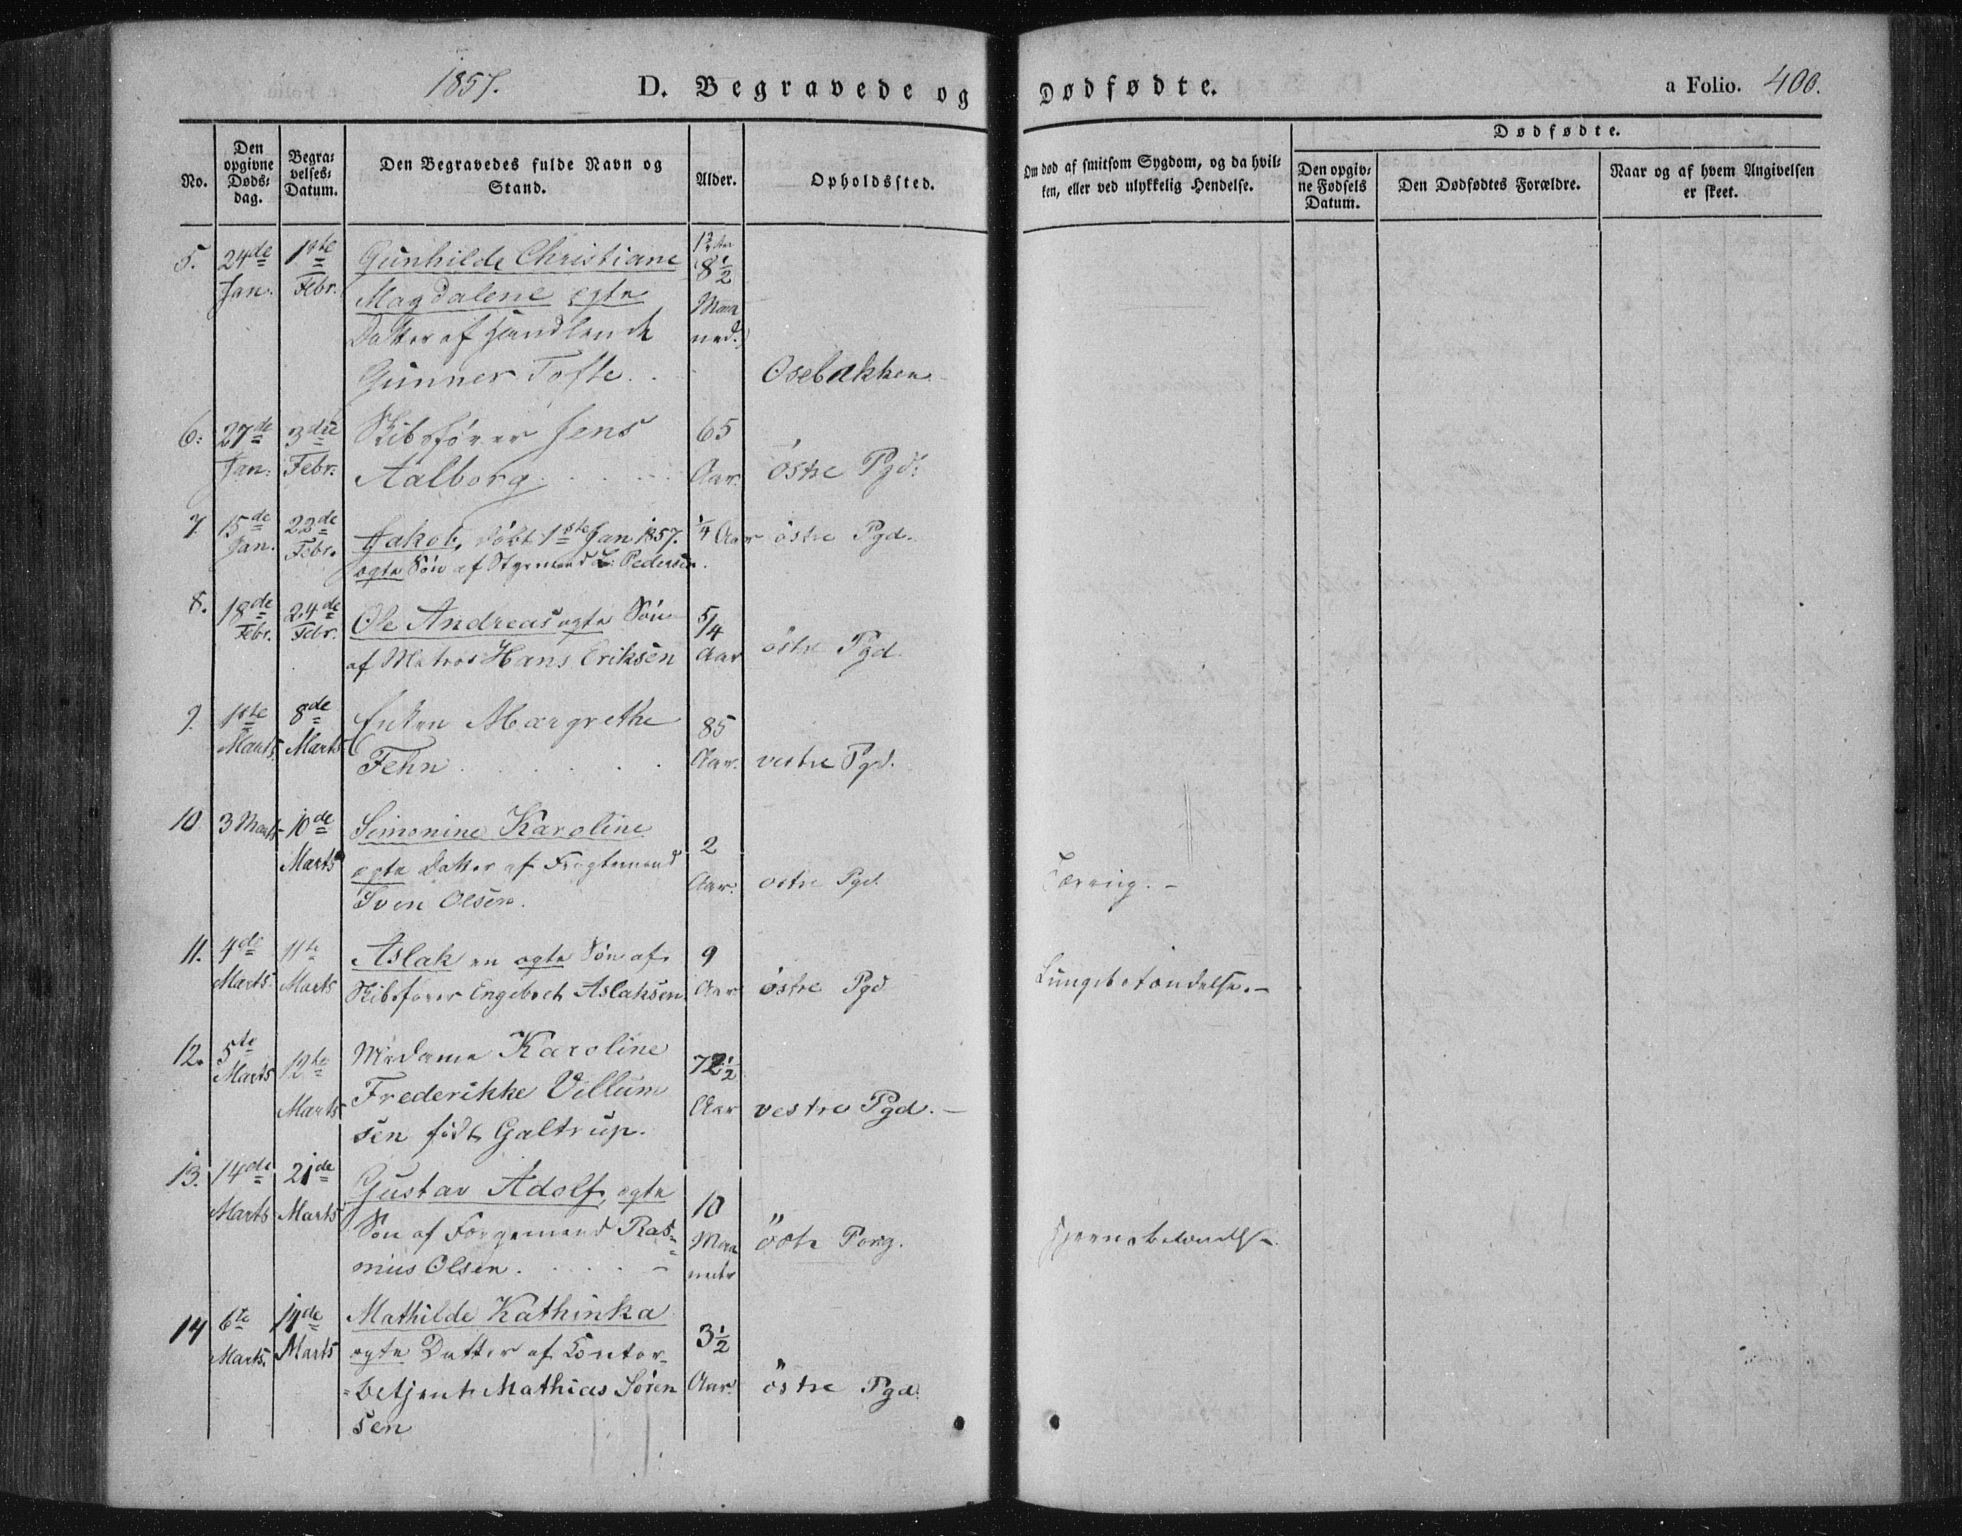 1857. D. Begravede og Dødfødte. a Folio. 400.
No.
Den opgivne Døds-dag.
Begra-velses-Datum.
Den Begravedes fulde Navn og Stand.
Alder.
Opholdssted.
Om død af smitsom Sygdom, og da hvil-
ken, eller ved ulykkelig Hendelse.
Dødfødte.
Den opgiv-ne Fødsels Datum.
Den Dødfødtes Forældre.
Naar og af hvem Angivelsen
er skeet.
5. 24de 1ste Gunhilde Christiane 8½
Jan. Febr. Magdalene ægte Maa
Datter af Handlende ned.
Gunner Tofte. Osebakken
6. 27de 3die Skibsfører Jens 65
Jan. Febr. Aalborg Aar. östre Pgd.
7. 15de 22de Jakob, døbt 1ste Jan 1857. ¼ Aar östre Pgd.
Jan. Febr. ægte Søn af Styrmand L. Pedersen.
8. 18de 24de Ole Andreas ægte Søn 5/4
Febr. Febr. af Matros Hans Eriksen Aar östre Pgd.
9. 1ste 8de Enken Margrethe 85
Marts. Marts Fehn Aar. vestre Pgd.
10 3 Marts 10de Simonine Karoline 2
Marts ægte Datter af Fragtemand Aar. östre Pgd.
Sven Olsen. Tæring. -
11. 4de 11te Aslak en ægte Søn af 9
Marts. Marts Skibsfører Engebret Aslaksen Aar östre Pgd Lungebetændelse. -
12. 5te 12te Madame Karoline 72½
Marts Marts Frederikke Villum Aar vestre Pgd. -
sen født Galtrup.
13. 14de 21de Gustav Adolf, ægte 10
Marts Marts Søn af Forgemand Ras- Maa
mius Olsen. neder östr Porg. Hjernebetændelse.
14 6te 14de Mathilde Kathinka 3½
Marts. Marts ægte Datter af Contor-
betjent Mathias Sören Aar. östre Pgd.
sen